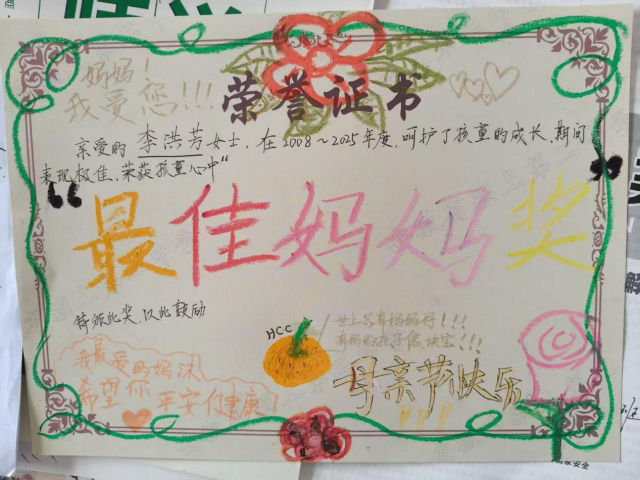 妈妈！
我爱您!!!
荣誉证书
亲爱的 李洪芳 女士，在2008～2025年度，呵护了孩童的成长，期间
表现极佳，荣获孩童心中
“最佳妈妈奖”
特颁此奖，以此鼓励
HCC
世上只有妈妈好!!!
有妈的孩子像块宝!!!
我最爱的妈沫
希望你平安健康！
母亲节快乐
!!!
班